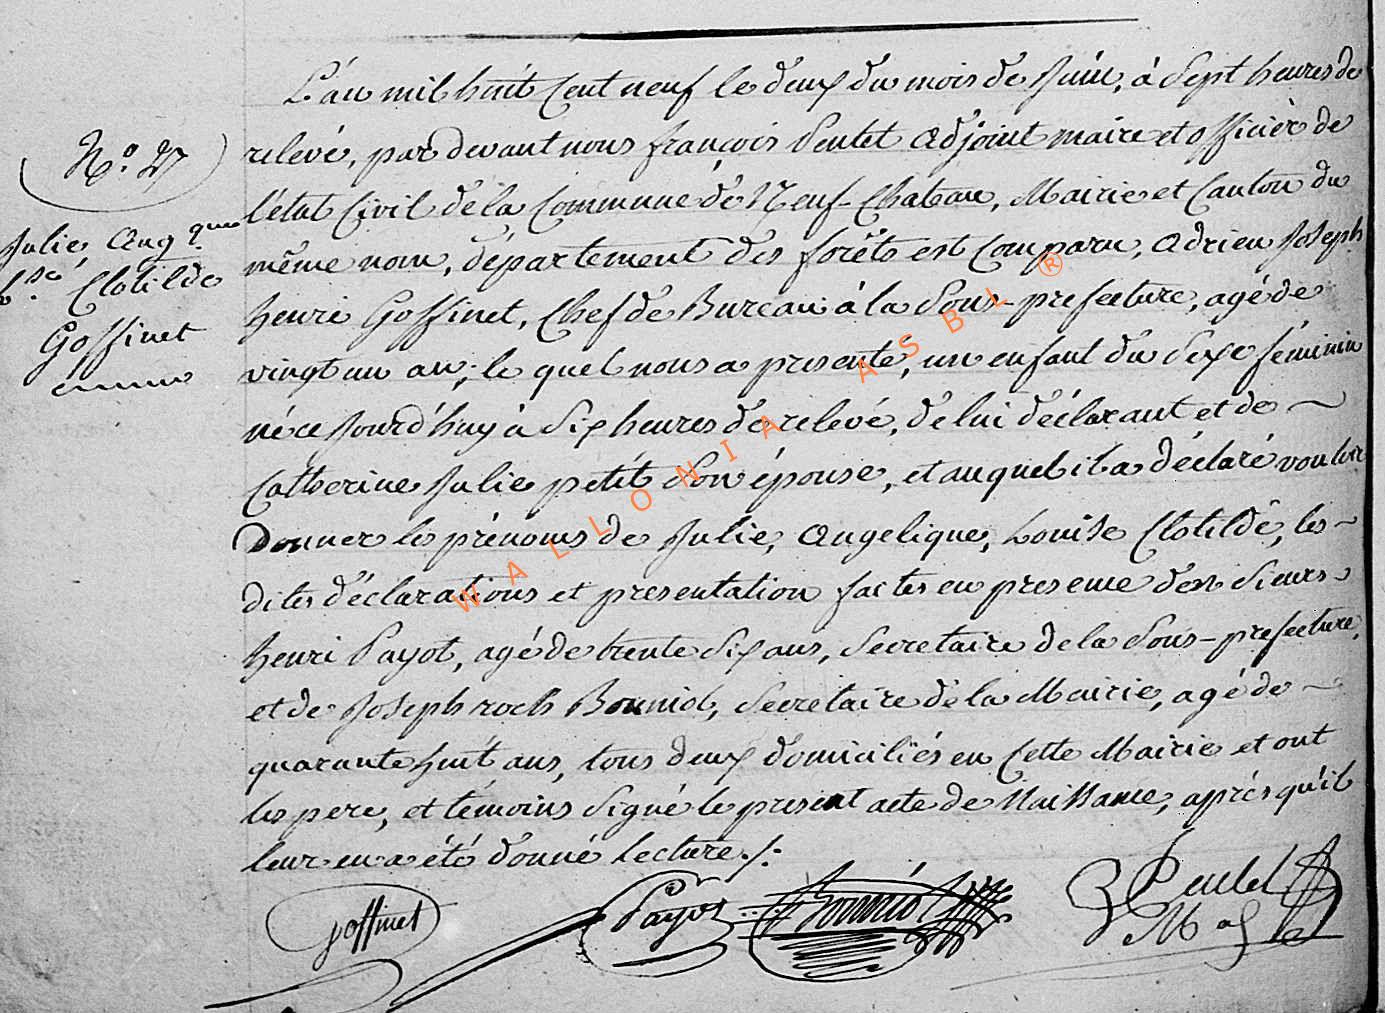 L'an mil huit Cent neuf le deux du mois de Juin, à Sept heures de
relevé, par devant nous françois Pentet adjoint maire et officier de
l'état Civil de la Commune de Neuf-Chateau, Mairie et Canton du
même nom, département des forêts est comparu, Adrien Joseph
henri Goffinet, Chef de Bureau à la Sous-prefecture, agé de
vingt un an; le quel nous a presenté, un enfant du Sexe féminin
né ce Jourd'huy à Six heures de relevé, de lui déclarant et de ~
Catherine Julie petit Son épouse, et auquel il a déclaré vouloir
Donner les prénoms de Julie, Angelique, Louise Clotilde, les ~
dites déclarations et presentation faites en presence des Sieurs
henri Payot, agé de trente Six ans, Secretaire de la Sous-prefecture,
et de Joseph roch Bonniol, Secretaire de la Mairie, agé de ~
quarante huit ans, tous deux domiciliés en Cette Mairie et ont
les pere, et témoins Signé le present acte de Naissance, après qu'il
leur en a été donné lecture./.
N.o 27
Julie, Angque
Lse Clotilde
Goffinet
goffinet
Payot
Bonniol
WALLONIA ASBL ®